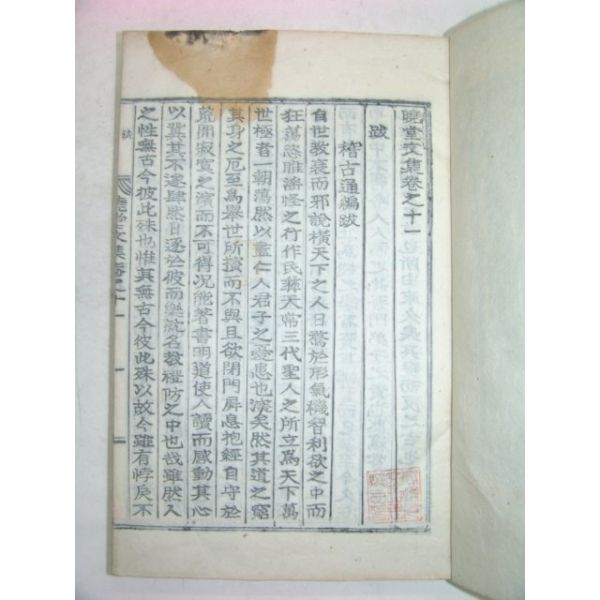 曉堂文集卷之十一
跋
稽古通編跋
自世敎衰而邪說橫天下之人日騖於形氣機智利欲之中而
狂蕩恣睢滛怪之行作民彛天常三代聖人之所立爲天下萬
世極者一朝蕩然以盡仁人君子之憂患也深矣然其道之窮
其身之厄至爲擧世所擯而不與且欲閉門屛息抱經自守於
荒閒寂寞之濱而不可得况能著書明道使人讀而感動其心
以冀其不遂肆然日逐於彼而樂就名敎禮防之中也哉雖然人
之性無古今彼此殊也惟其無古今彼此殊以故今雖有悖戾不
跋
曉堂文集卷之十一
一